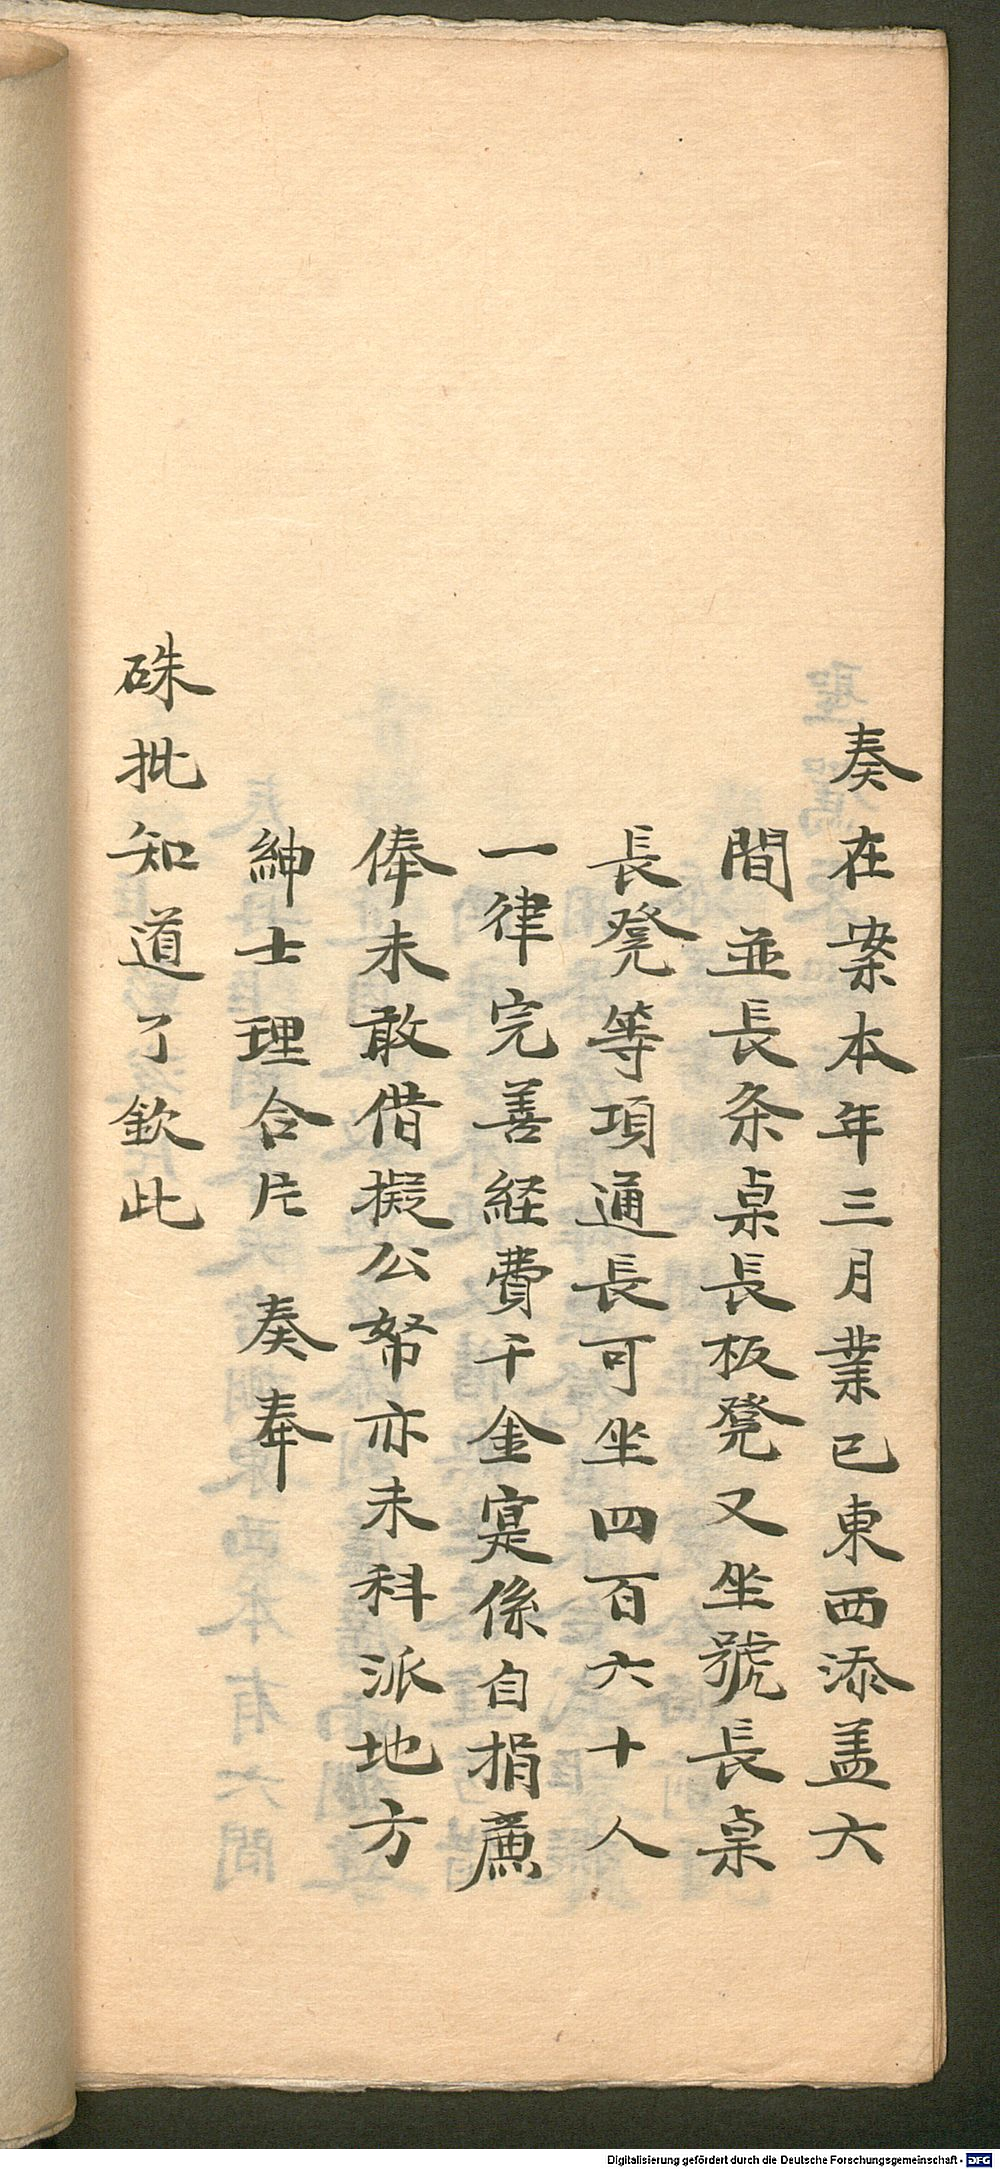 奏在案本年三月業已東西添盖六
間並長条桌長板凳又坐號長桌
長凳等項通長可坐四百六十人
一律完善経費千金寔係自捐廉
俸未敢借擬公帑亦未科派地方
紳士理合片　奏奉
硃批知道了欽此
Digitalisierung gefördert durch die Deutsche Forschungsgemeinschaft - DFG